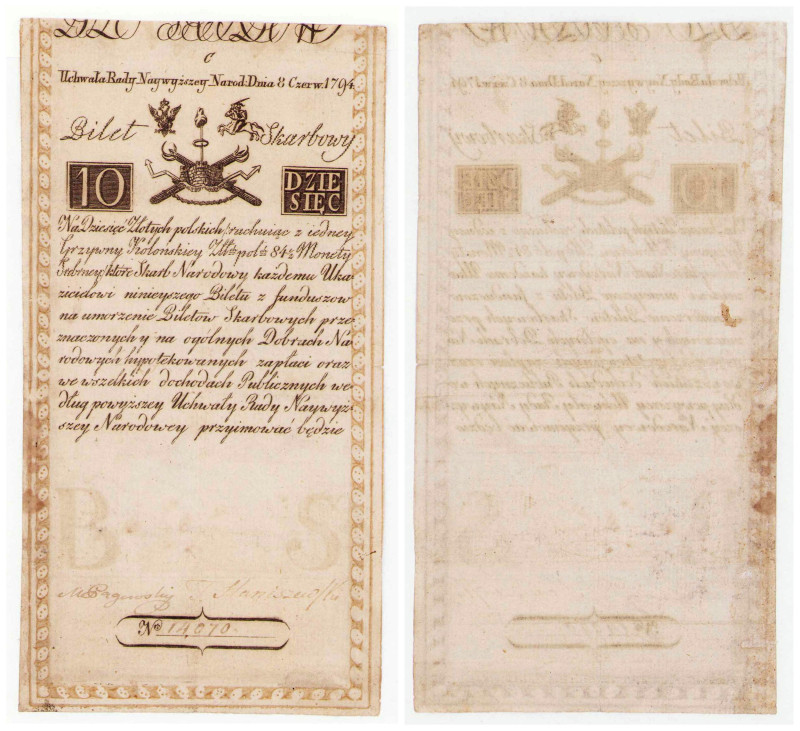 C
Uchwała Rady Naywyższey Narod: Dnia 8 Czerw. 1794.
Bilet Skarbowy
10 DZIE
SIĘC
Na Dziesięć Złotych polskich, rachuiąc z iedney
Grzywny Kolońskiey Złł: pol: 84½ Monety
Srebrney, które Skarb Narodowy każdemu Uka
zicielowi ninieyszego Biletu z funduszow
na umorzenie Biletow Skarbowych prze
znaczonych y na ogólnych Dobrach Na
rodowych hypotekowanych zapłaci oraz
we wszelkich dochodach Publicznych we
dług powyższey Uchwały Rady Naywyż
szey Narodowey przyimować będzie
B S
T. Staniszewski
No 14,070.